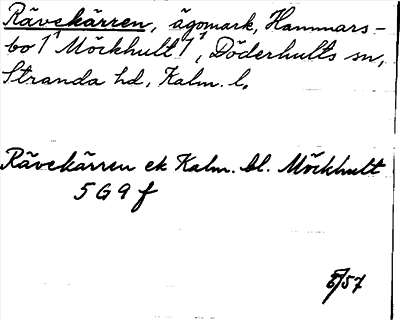 Rävekärren, ägomark, Hammars-
bo 1¹ Möckhult 1¹, Döderhults sn,
Stranda hd, Kalm. l.
Rävekärren ek Kalm. bl. Möckhult
5 G 9 f
/57